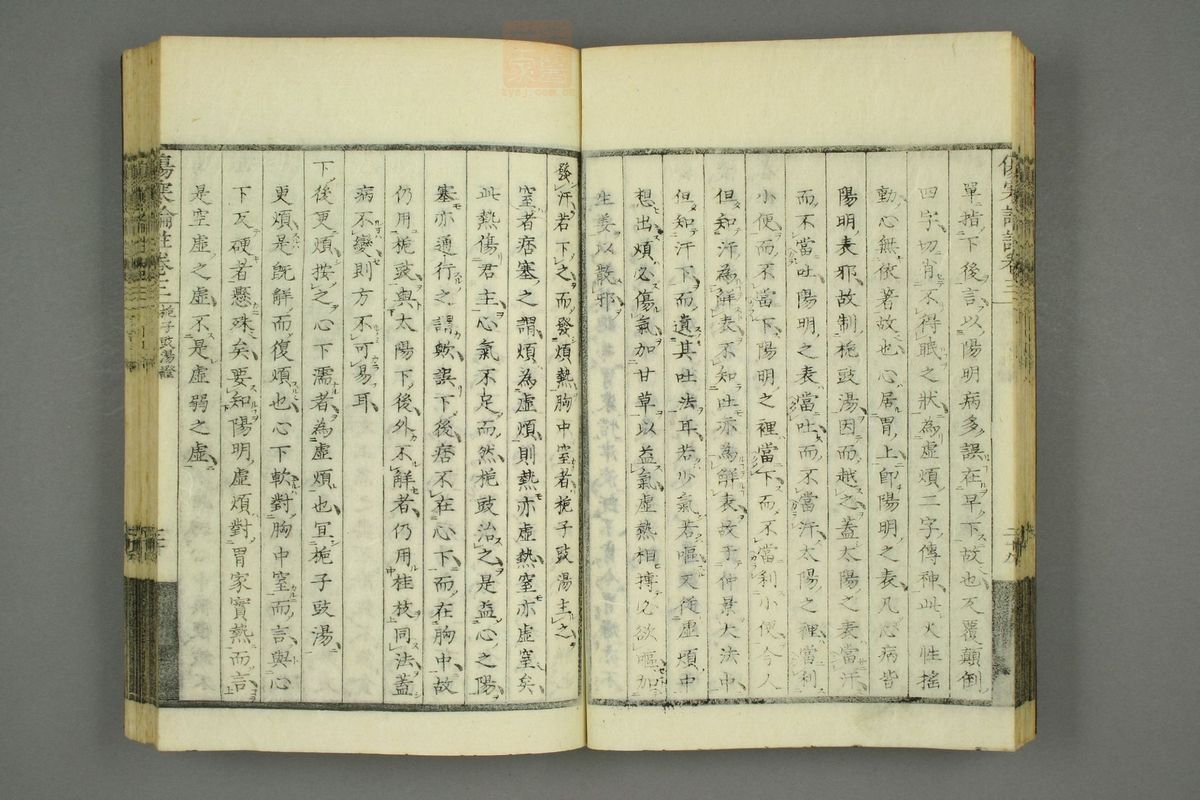 單指下後言以陽明病多誤在早下故也反覆顛倒
四字切肖不得眠之狀為虛煩二字傳神此火性搖
動心無依著故也心居胃上卽陽明之表凡心病皆
陽明表邪故制梔豉湯因而越之蓋太陽之表當汗
而不當吐陽明之表當吐而不當汗太陽之裡當利
小便而不當下陽明之裡當下而不當利小便今人
但知汗為解表不知吐亦為解表故于仲景大法中
但知汗下而遺其吐法耳若少氣若嘔又從虛煩中
想出煩必傷氣加甘草以益氣虛熱相搏必欲嘔加
生姜以散邪
發汗若下之而發煩熱胸中窒者梔子豉湯主之
窒者痞塞之謂煩為虛煩則熱亦虛熱窒亦虛窒矣
此熱傷君主心氣不足而然梔豉治之是益心之陽
寒亦通行之謂歟誤下後痞不在心下而在胸中故
仍用梔豉與太陽下後外不解者仍用桂枝同法蓋
病不變則方不可易耳
下後更煩按之心下濡者為虛煩也宜梔子豉湯
更煩是旣解而復煩也心下軟對胸中窒而言與心
下反硬者懸殊矣要知陽明虛煩對胃家實熱而言
是空虛之虛不是虛弱之虛
傷寒論註卷三
梔子豉湯證